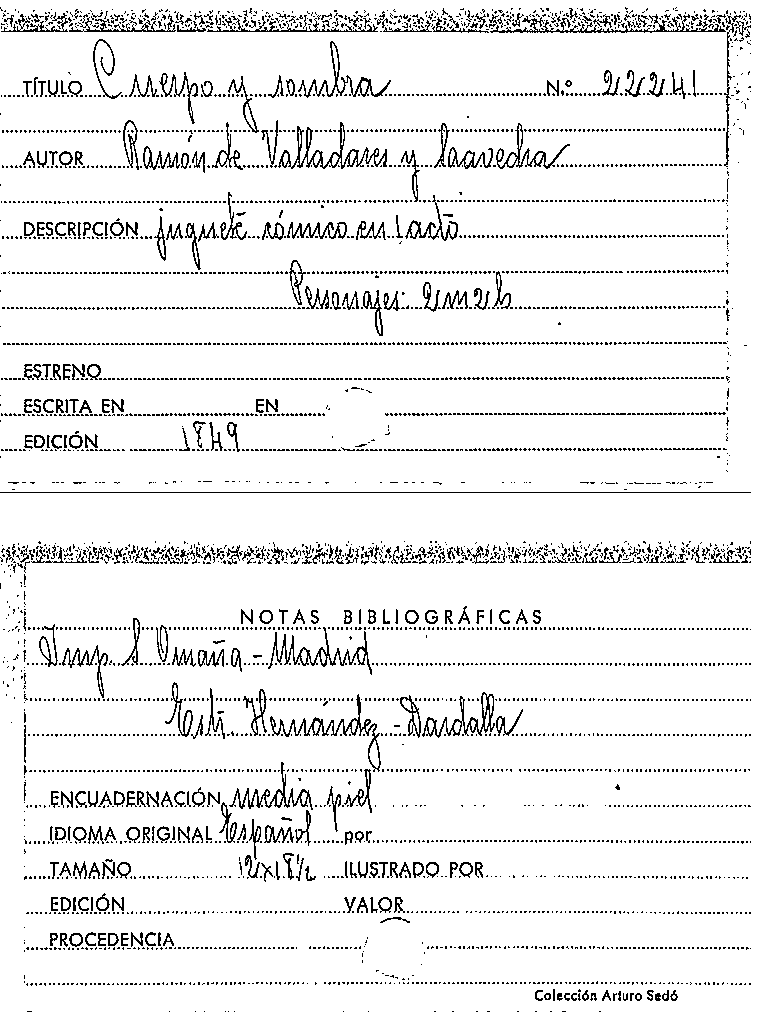 TÍTULO Cuerpo y sombra N.º 22241
AUTOR Ramón de Valladares y Saavedra
DESCRIPCIÓN juguete cómico en 1 acto
Personajes: 2m 2h
ESTRENO
ESCRITA EN EN
EDICIÓN 1849
NOTAS BIBLIOGRÁFICAS
Imp. S Omaña - Madrid
Estr. Hernández - Dardalla
ENCUADERNACIÓN media piel
IDIOMA ORIGINAL Español por
TAMAÑO 12x18½ ILUSTRADO POR
EDICIÓN VALOR
PROCEDENCIA
Colección Arturo Sedó